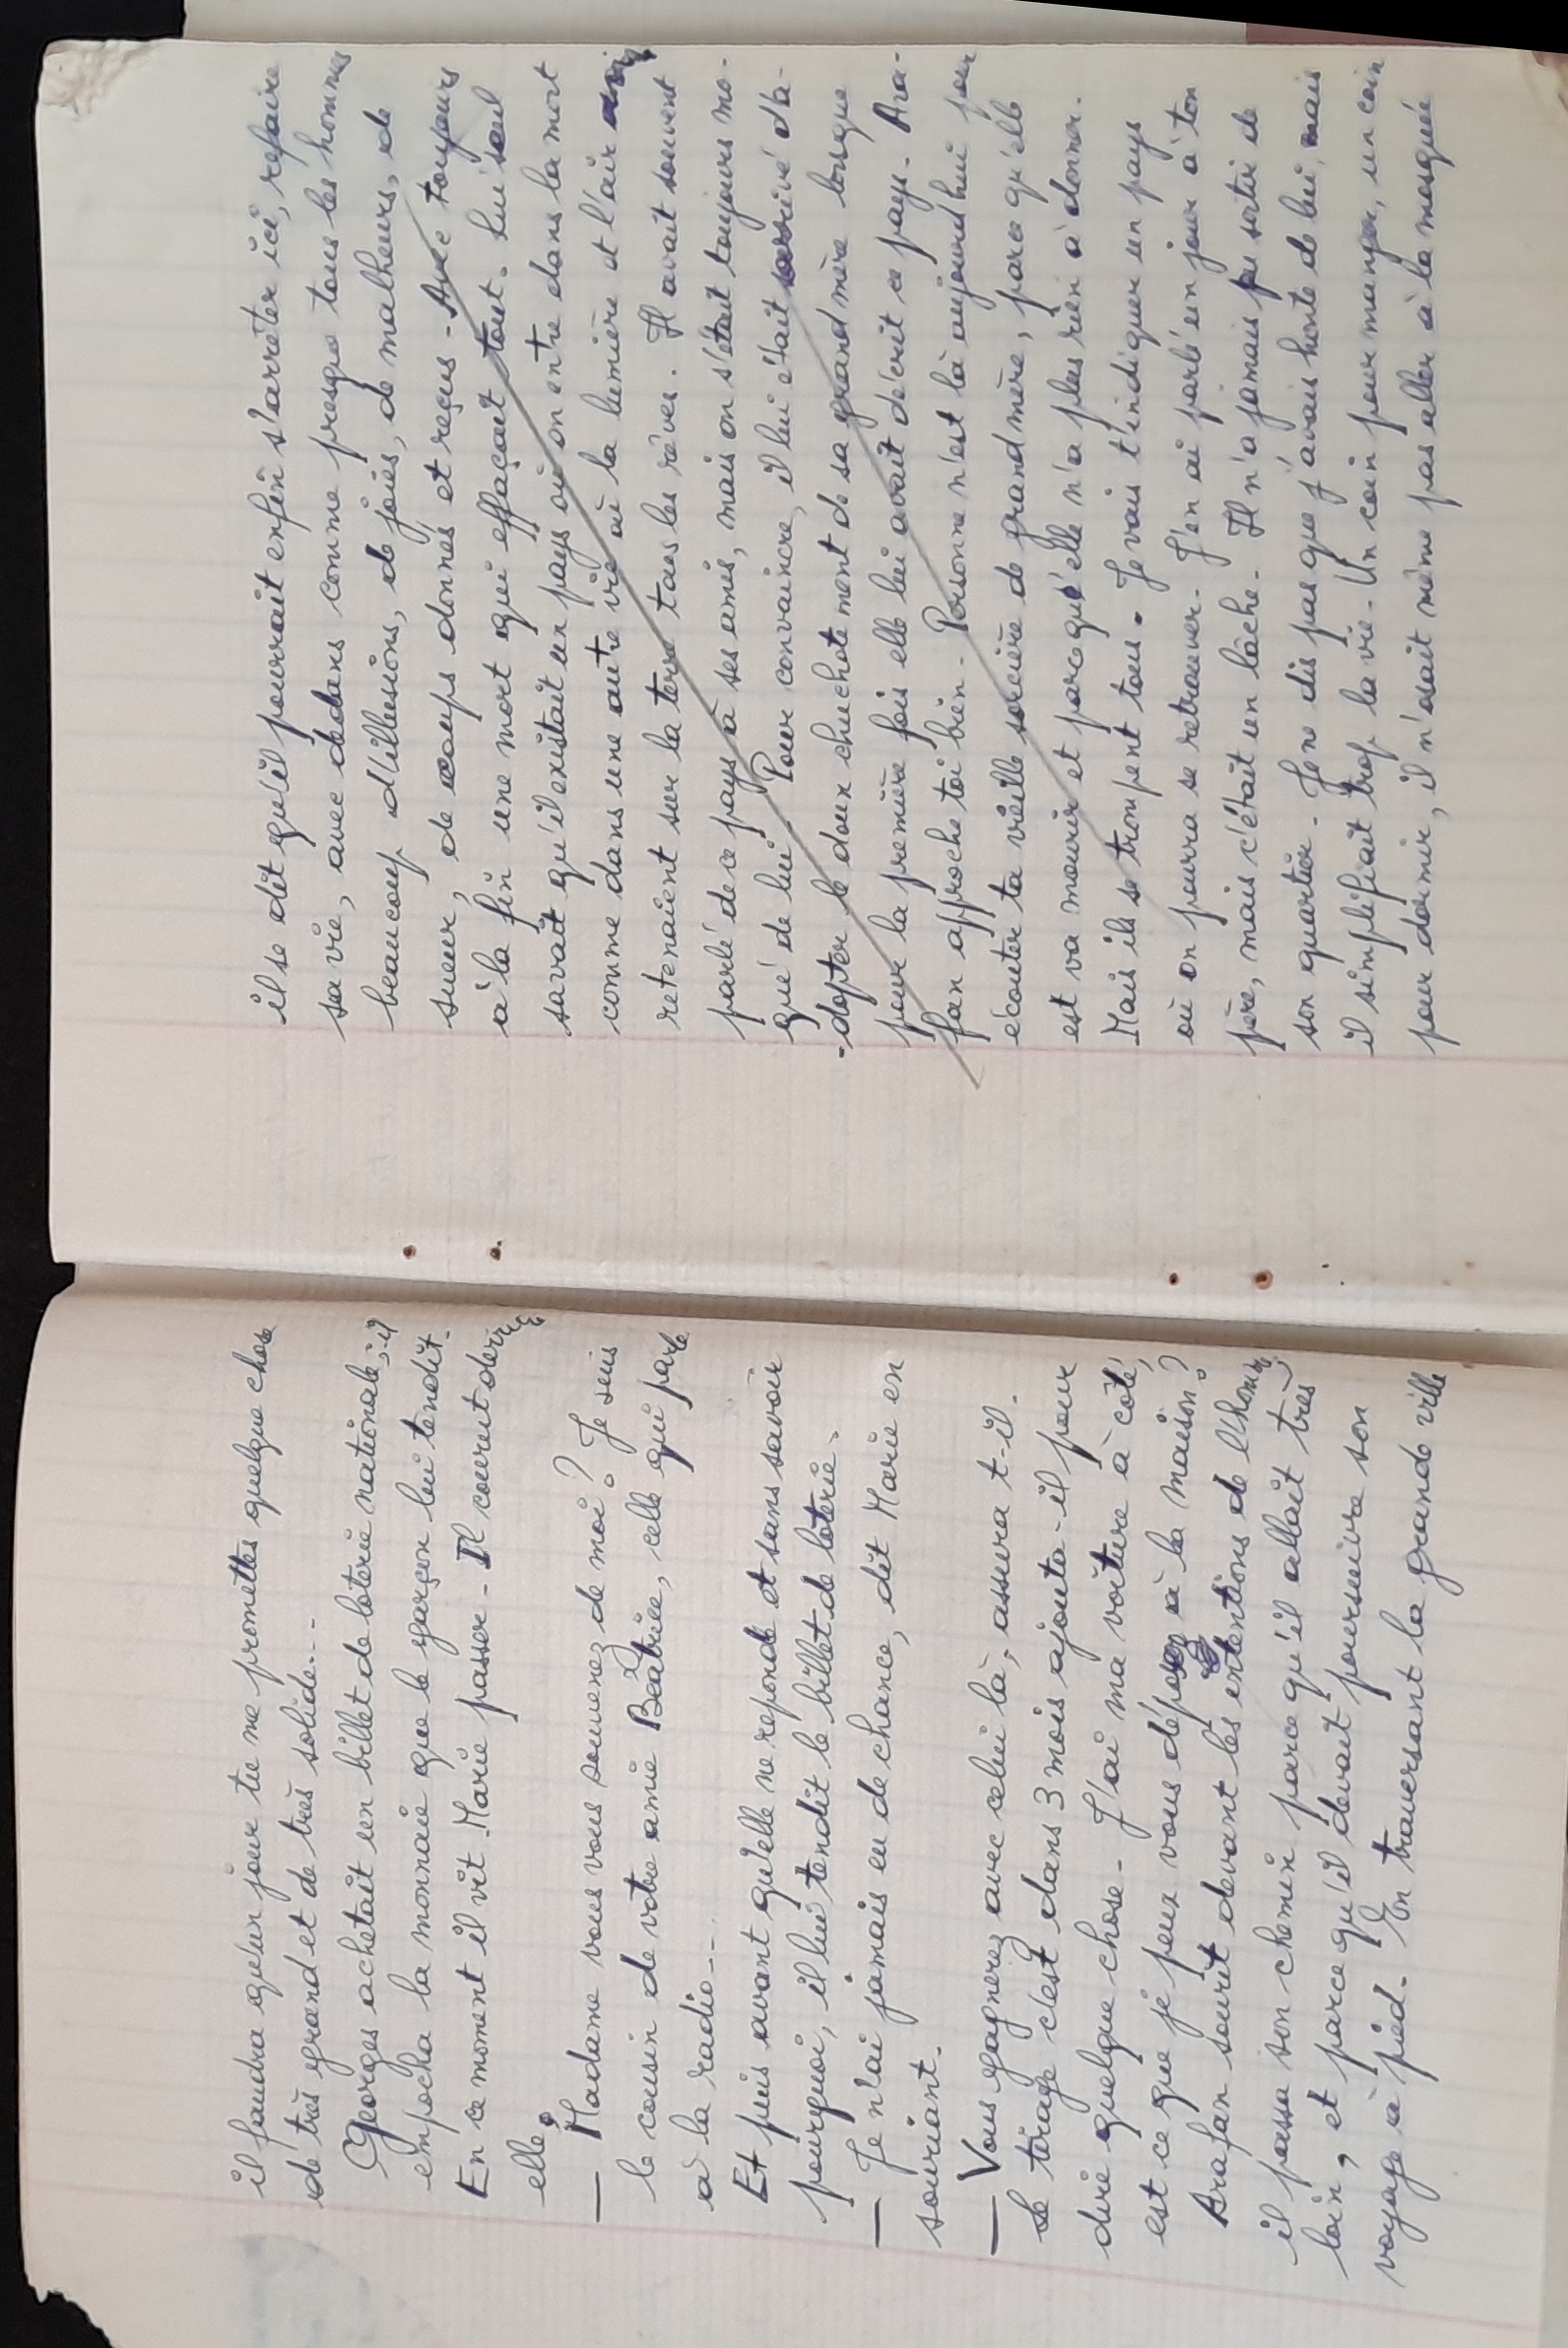 il faudra qu'un jour tu me promettes quelque chose
de très grand et de très solide...
Georges achetait un billet de loterie nationale; il
empocha la monnaie que le garçon lui tendit.
En ce moment il vit Marie passer - Il courut derrière
elle.
— Madame vous vous souvenez de moi ? Je suis
le cousin de votre amie Béatrice, celle qui parle
à la radio...
Et puis avant qu'elle ne reponde et sans savoir
pourquoi, il lui tendit le billet de loterie.
— Je n'ai jamais eu de chance, dit Marie en
souriant.
— Vous gagnerez avec celui là, assura t-il.
Le tirage c'est dans 3 mois ajouta-il pour
dire quelque chose - J'ai ma voiture à côté,
est ce que je peux vous déposer à la maison ?
Arafan sourit devant les intentions de l'homme,
il passa son chemin parce qu'il allait très
loin, et parce qu'il devait poursuivre son
voyage à pied. En traversant la grande ville
il se dit qu'il pourrait enfin s'arrêter ici, refaire
sa vie, avec dedans comme presque tous les hommes
beaucoup d'illusions, de joies, de malheurs, de
sueur, de coups donnés et reçus - Avec toujours
à la fin une mort qui effaçait tout. Lui seul
savait qu'il existait un pays où on entre dans la mort
comme dans une autre vie où la lumière et l'air
retenaient sur la terre tous les rêves. Il avait souvent
parlé de ce pays à ses amis, mais on s'était toujours mo-
qué de lui. Pour convaincre, il lui était arrivé d'a-
-dopter le doux chuchotement de sa grand mère lorsque
pour la première fois elle lui avait décrit ce pays - Ara-
fan approche toi bien - Personne n'est là aujourd'hui pour
écouter ta vieille sorcière de grand mère, parce qu'elle
est va mourir et parce qu'elle n'a plus rien à donner.
Mais ils se trompent tous. Je vais t'indiquer un pays
où on pourra se retrouver - J'en ai parlé un jour à ton
père, mais c'était un lâche - Il n'a jamais pu sortir de
son quartier - Je ne dis pas que j'avais honte de lui, mais
il simplifiait trop la vie - Un coin pour manger, un coin
pour dormir, il n'osait même pas aller à la mosquée